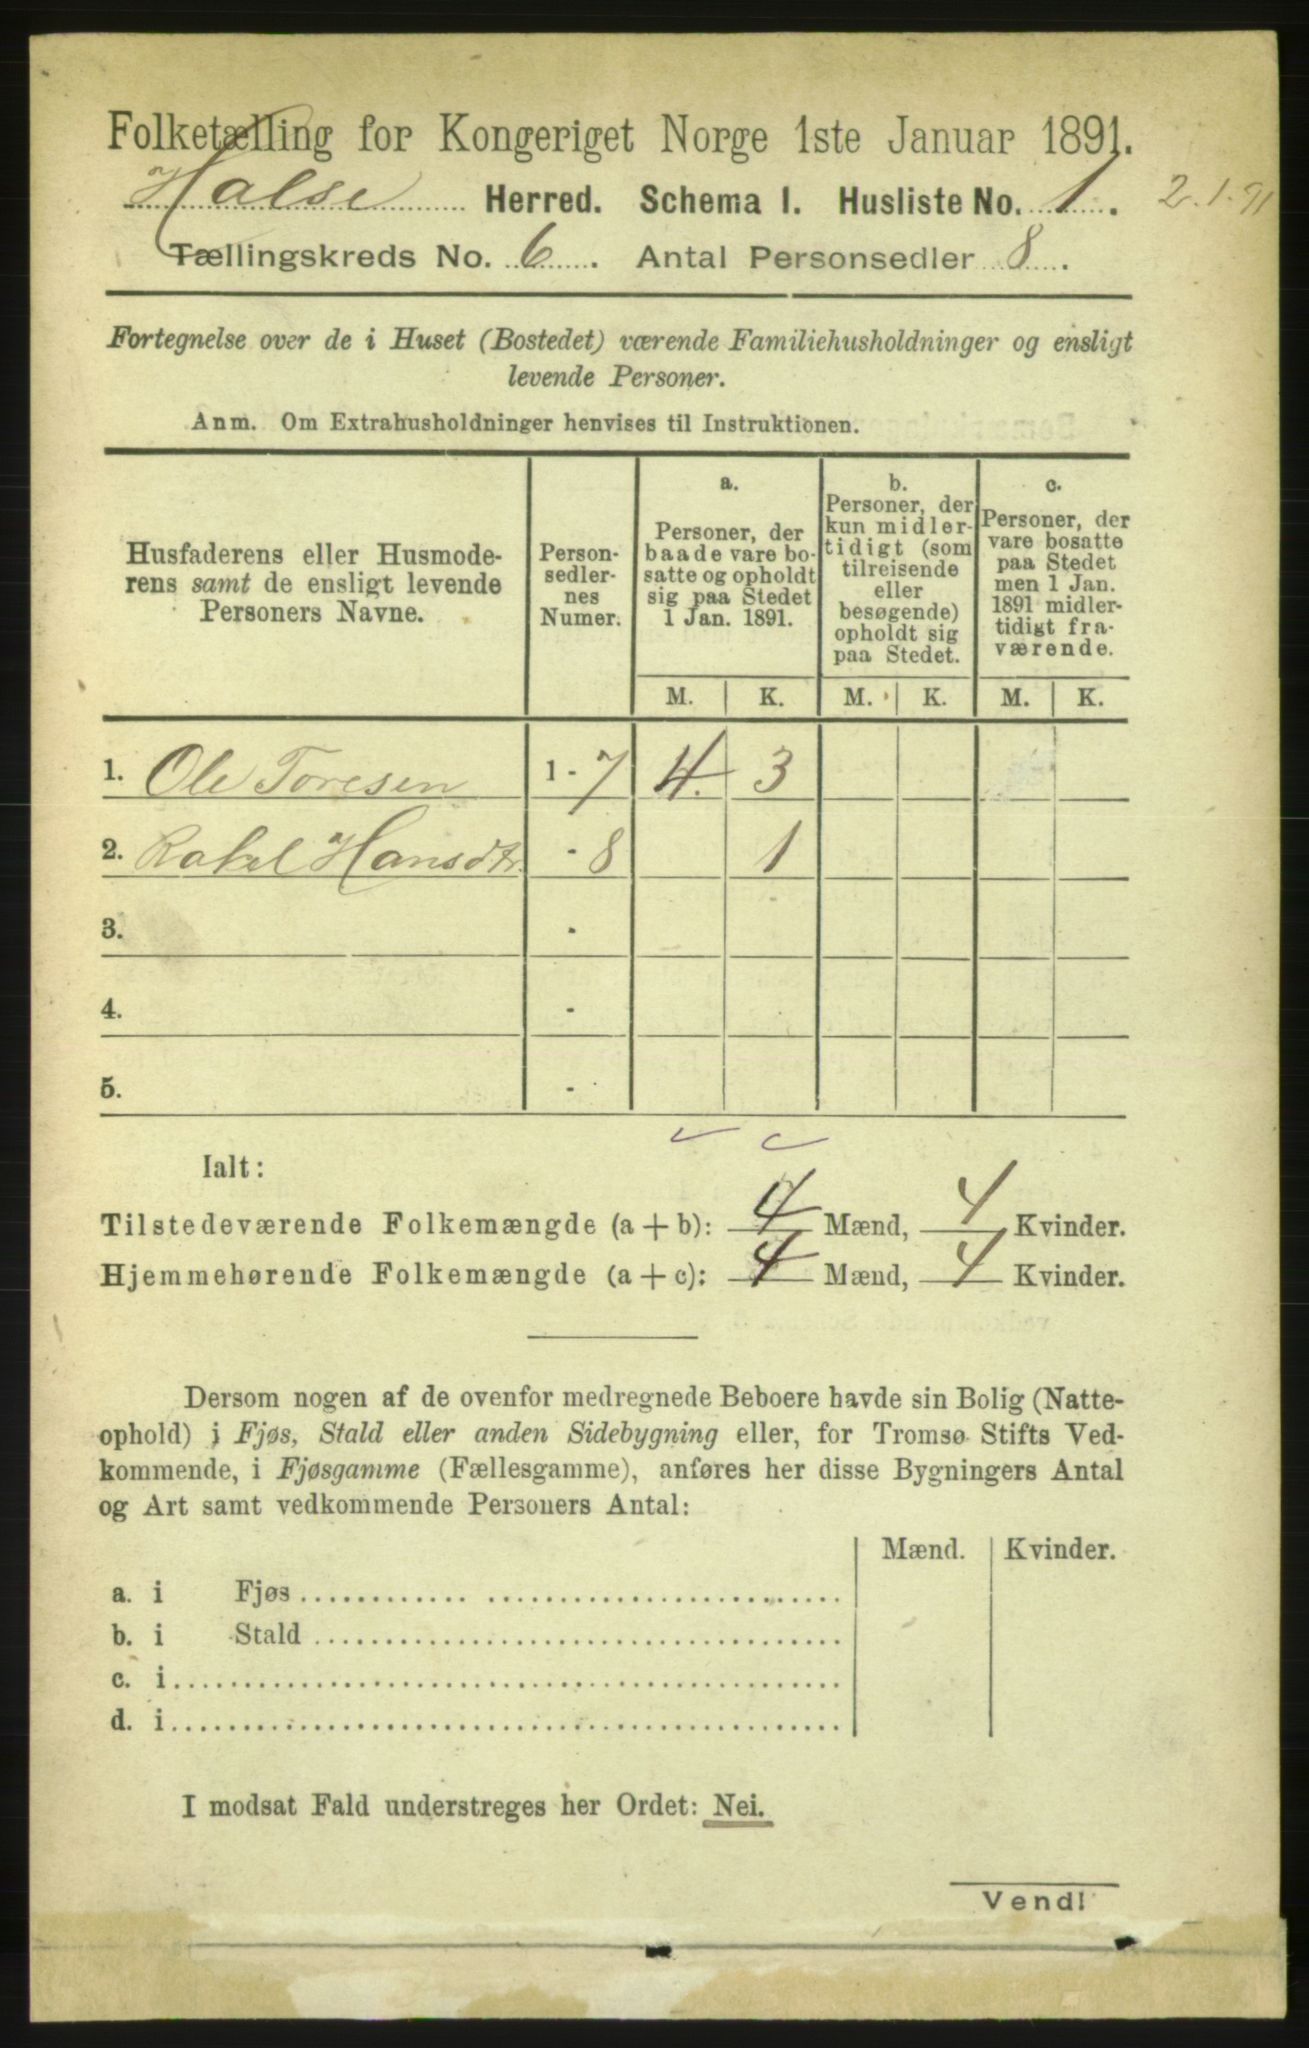 Folketælling for Kongeriget Norge 1ste Januar 1891.
Halse Herred. Schema I. Husliste No. 1. 2.1.91
Tællingskreds No. 6. Antal Personsedler 8.
Fortegnelse over de i Huset (Bostedet) værende Familiehusholdninger og ensligt
levende Personer.
Anm. Om Extrahusholdninger henvises til Instruktionen.
Husfaderens eller Husmode-
rens samt de ensligt levende
Personers Navne.
Person-
sedler-
nes
Numer.
a.
Personer, der
baade vare bo-
satte og opholdt
sig paa Stedet
1 Jan. 1891.
b.
Personer, der
kun midler-
tidigt (som
tilreisende
eller
besøgende)
opholdt sig
paa Stedet.
c.
Personer, der
vare bosatte
paa Stedet
men 1 Jan.
1891 midler-
tidigt fra-
værende.
M. K. M. K. M. K.
1. Ole Toresen 1 - 7 4. 3
2. Rakel Hansdtr. - 8 1
3. -
4. -
5. -
Ialt:
Tilstedeværende Folkemængde (a + b): 4 Mænd, 4 Kvinder.
Hjemmehørende Folkemængde (a + c): 4 Mænd, 4 Kvinder.
Dersom nogen af de ovenfor medregnede Beboere havde sin Bolig (Natte-
ophold) i Fjøs, Stald eller anden Sidebygning eller, for Tromsø Stifts Ved-
kommende, i Fjøsgamme (Fællesgamme), anføres her disse Bygningers Antal
og Art samt vedkommende Personers Antal:
Mænd. Kvinder.
a. i Fjøs
b. i Stald
c. i
d. i
I modsat Fald understreges her Ordet: Nei.
Vend!